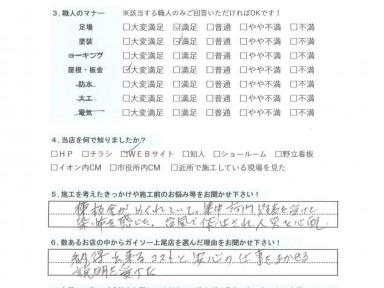 3. 職人のマナー ※該当する職人のみご回答いただければOKです！
足場 □大変満足 ☑満足 □普通 □やや不満 □不満
塗装 □大変満足 ☑満足 □普通 □やや不満 □不満
コーキング □大変満足 □満足 □普通 □やや不満 □不満
屋根・板金 ☑大変満足 □満足 □普通 □やや不満 □不満
防水 □大変満足 □満足 □普通 □やや不満 □不満
大工 □大変満足 □満足 □普通 □やや不満 □不満
電気 □大変満足 □満足 □普通 □やや不満 □不満
4. 当店を何で知りましたか？
□HP □チラシ ☑WEBサイト □知人 □ショールーム □野立看板
□イオン内CM □市役所内CM □近所で施工している現場を見た
5. 施工を考えたきっかけや施工前のお悩み等をお聞かせ下さい！
棟板金がめくれていて、集中
6. 数あるお店の中からガイソー上尾店を選んだ理由をお聞かせ下さい！
納得出来るコストと安心の仕事をまかせる
説明を受けた